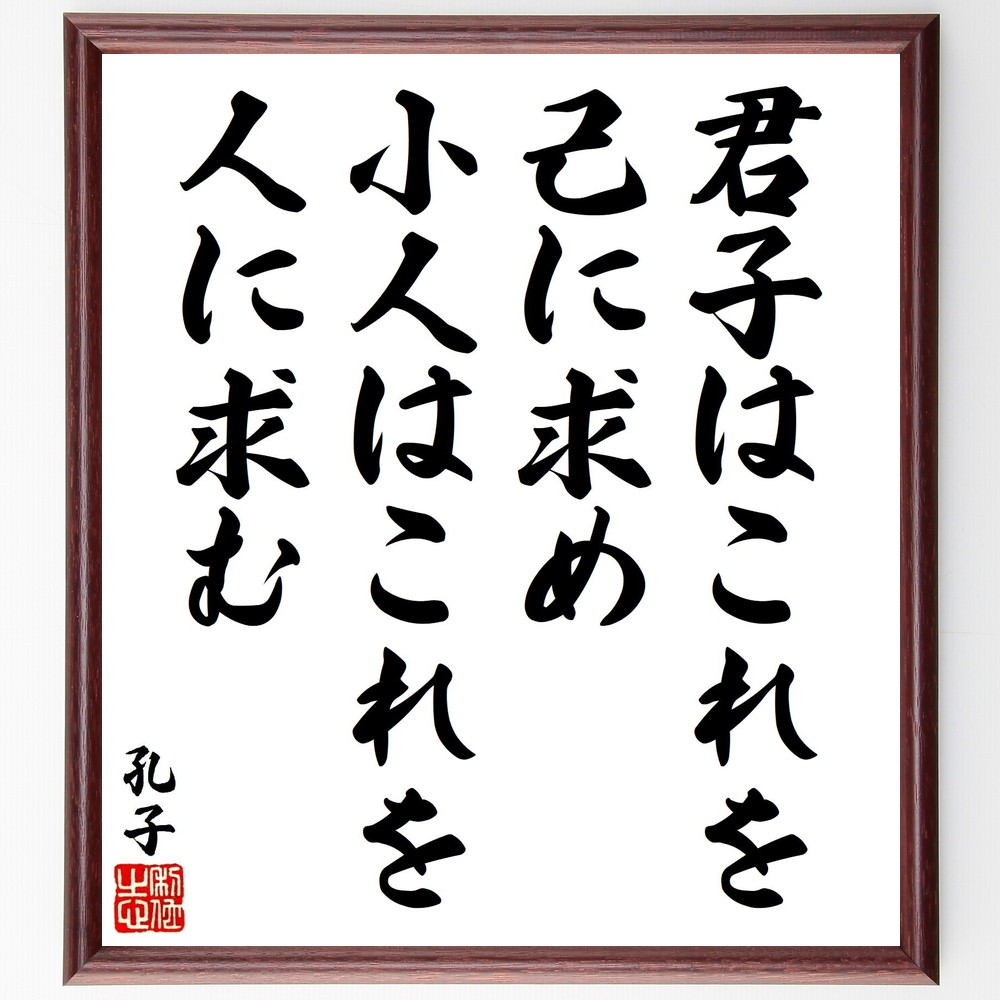 君子はこれを
己に求め
小人はこれを
人に求む
孔子